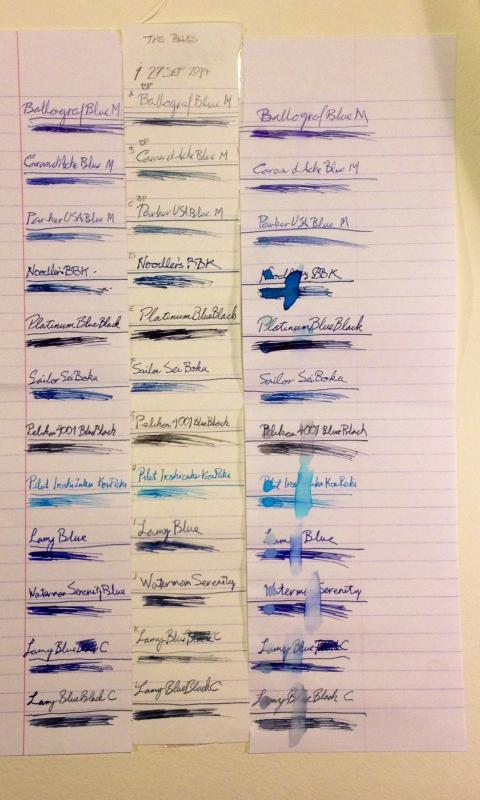 Ballograf Blue M
Caran d'Ache Blue M
Parker USA Blue M
Noodler's BBK
Platinum Blue Black
Sailor Sei Boku
Pelikan 4001 Blue Black
Pilot Iroshizuku Kon Peki
Lamy Blue
Waterman Serenity Blue
Lamy Blue C
Lamy Blue Black C
THE BLUES
27 SEP 2014
BP
A Ballograf Blue M
BP
B Caran d'Ache Blue M
BP
C Parker USA Blue M
D Noodler's BBK
E Platinum Blue Black
F Sailor Sei Boku
G Pelikan 4001 Blue Black
H Pilot Iroshizuku Kon Peki
I Lamy Blue
J Waterman Serenity
K Lamy Blue C
L Lamy Blue Black C
Ballograf Blue M
Caran d'Ache Blue M
Parker USA Blue M
Noodler's BBK
Platinum Blue Black
Sailor Sei Boku
Pelikan 4001 Blue Black
Pilot Iroshizuku Kon Peki
Lamy Blue
Waterman Serenity
Lamy Blue C
Lamy Blue Black C